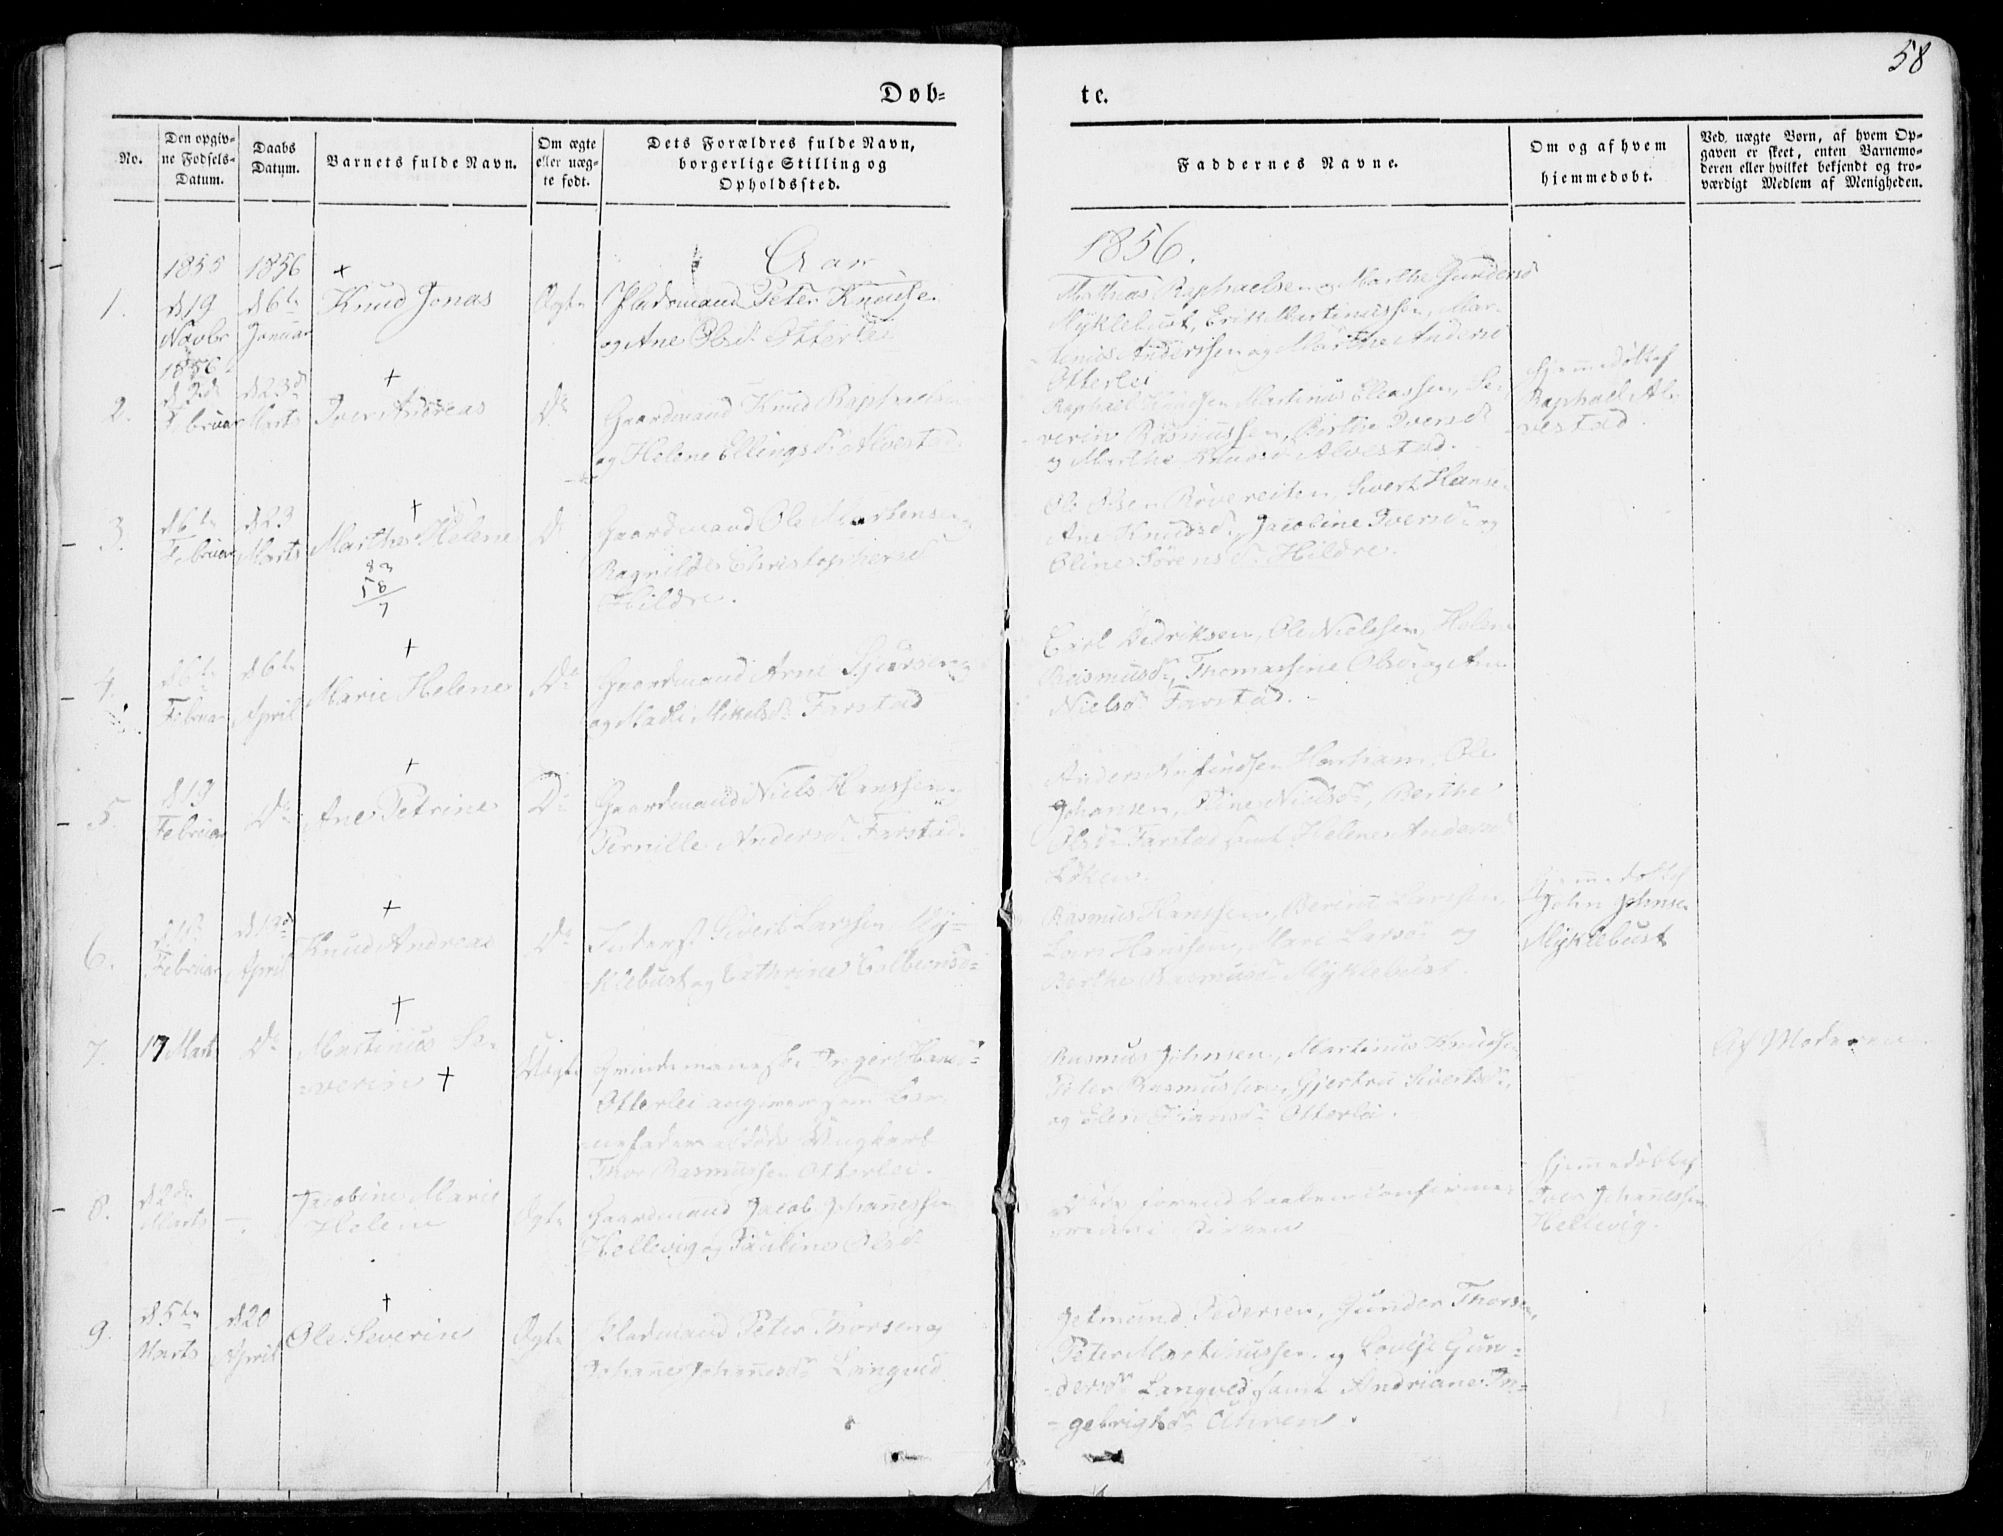 58
Døb-
te.
No.
Den opgiv-
ne Fødsels-
Datum.
Daabs
Datum.
Barnets fulde Navn.
Om ægte
eller uæg-
te født.
Dets Forældres fulde Navn,
borgerlige Stilling og
Opholdssted.
Faddernes Navne.
Om og af hvem
hjemmedøbt.
Ved uægte Børn, af hvem Op-
gaven er skeet, enten Barnemo-
deren eller hvilket bekjendt og tro-
værdigt Medlem af Menigheden.
Aar
1856.
1855
1856
1.
d 19
Novbr
d 6te
Januar
Knud Jonas
Ægte
Pladsmand Peter Knudsen
og Ane Olsd. Otterlei
Mathias Raphaelsen og Marthe Gundersd
Myklebust, Erik Martinussen, Mar-
tinus Anderssen og Marthe Andersd
Otterlei
1856
2.
Februar
d 23de
Marts
Iver Andreas
Do
Gaardmand Knud Raphaelsen
og Helene Ellingsd. Alvestad.
Raphael Knudsen, Martinus Eleassen, Se-
verin Rasmussen, Berthe Iversd
og Marthe Knudsd Alvestad.
hjemmedøbt af
Raphael Al-
vestad.
3.
d 6te
Februar
d 23
Marts
Marthe Helene
83
58
7
D.
Gaardmand Ole Mortensen
Ragnilde Christophersd
Hildre.
Ole Olsen Røvereiten, Sivert Hanse-
Ane Knudsd., Jacobine Iversd. og
Oline Sørensd. Hildre.
4.
d 6te
Februar
d 6te
April
Marie Helene
Do
Gaardmand Arne Sjursen
og Madli Mikelsd. Farstad
Didriksen, Ole Nielssen, Helene
Rasmusd., Thomassine Olsd. og Ane
Nielsd. Farstad.
5.
d 19
Februar
Do
Ane Petrine
Do
Gaardmand Niels Hanssen
Pernille Andersd. Farstad.
Anders Anfindsen Harham, Ole
Johansen, Nielsd., Berthe
Olsd. Farstad samt Helene Andersd
Løken.
6.
Februar
April
Knud Andreas
Do
Inderst Sivert Larssen My-
klebust og Cathrine
Rasmus Hanssen, Larssen,
Lars Hanssen, Larsd. og
Berthe Rasmusd. Myklebust.
hjemmedøbt af
John Johnsen
Myklebust
7.
17 Marts
Do
Martinus Se-
verin
Uægte
Inger Hansd.
Otterlei angiver som Bar-
nefader afdøde Ungkarl
Thor Rasmussen Otterlei.
Rasmus Johnsen, Martinus Knudsen
Peter Rasmussen, Gjertru Sivertsd.,
og Elen Hansd. Otterlei.
Af Moderen.
8.
d 2den
Marts
-
Jacobine Marie
Helene
Ægte
Gaardmand Jacob Johannessen
Hellevig og Pauline Olsd.
Døde forend Daaben confirme-
redes i Kirken
hjemmedøbt af
Iver Johannessen
Hellevig.
9.
d 5te
Marts
d 20
April
Ole Severin
Ægte
Pladsmand Peter Thorsen og
Johanne Johannesd. Langved.
Getmund Pedersen, Gunder Thorsen,
Peter Martinussen og Lovise Gun-
dersd. Langved samt Andriane In-
gebrigtsd.